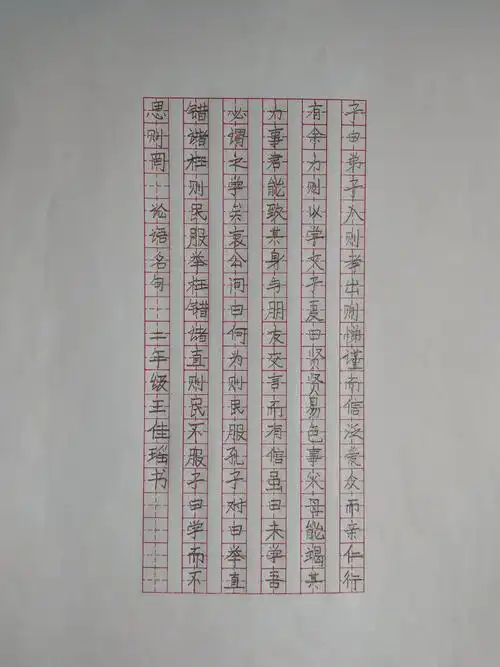 子曰弟子入则孝出则悌谨而信泛爱众而亲仁行
有余力则以学文子夏曰贤贤易色事父母能竭其
力事君能致其身与朋友交言而有信虽曰未学吾
必谓之学矣哀公问曰何为则民服孔子对曰举直
错诸枉则民服举枉错诸直则民不服子曰学而不
思则罔 论语名句 二年级王佳瑶书